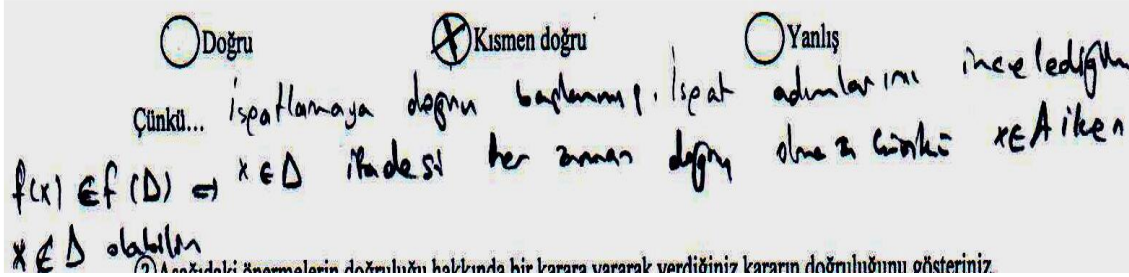 Doğru Kısmen doğru Yanlış
Çünkü... İspatlamaya doğru başlanmış. İspat adımlarını incelediğim
f(x) ∈ f(D) ⇒ x ∈ D ifadesi her zaman doğru olmaz çünkü x∈A iken
x ∉ D olabilir
2 Aşağıdaki önermelerin doğruluğu hakkında bir karara vararak verdiğiniz kararın doğruluğunu gösteriniz.